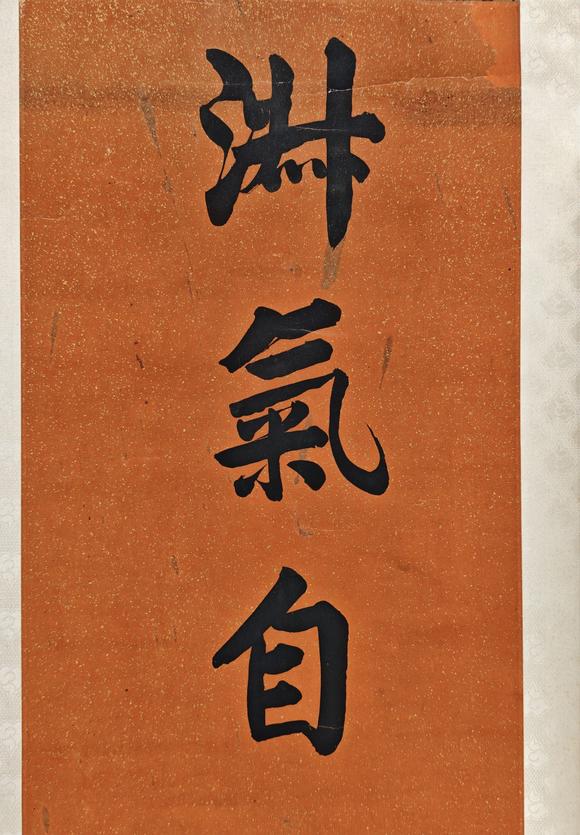 淵氣自